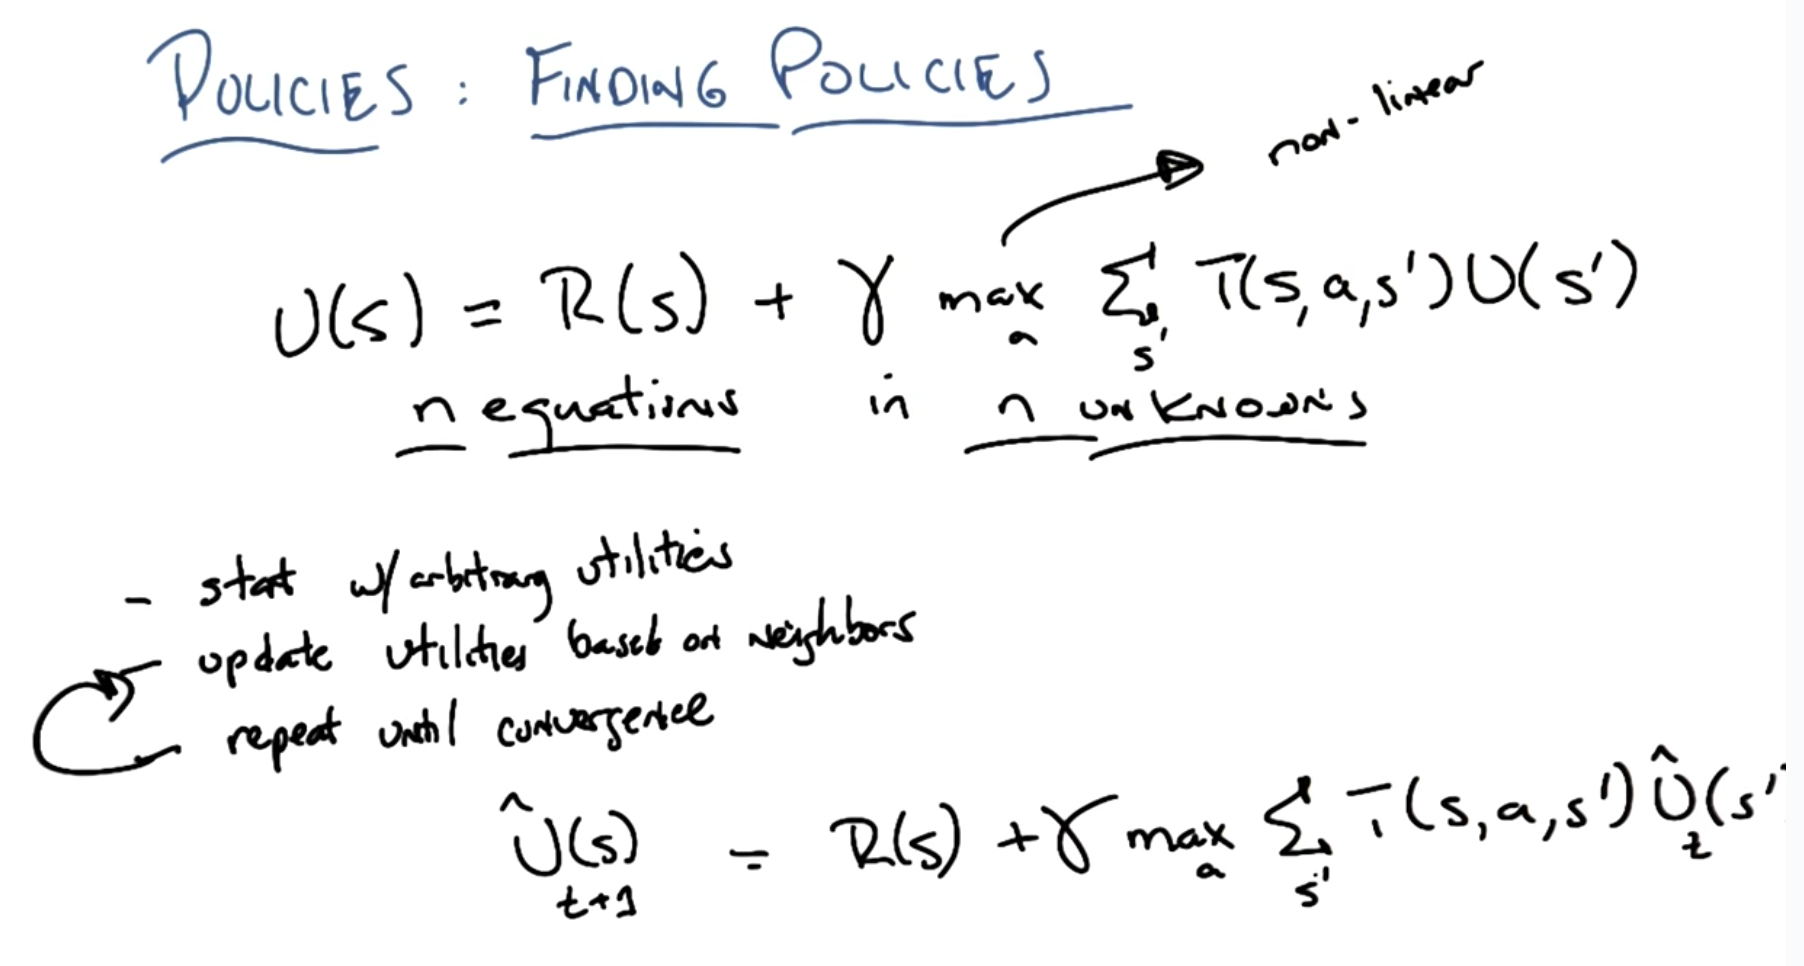 POLICIES: FINDING POLICIES
non-linear
U(s) = R(s) + γ max_a Σ_s' T(s,a,s')U(s')
n equations in n unknowns
- start w/ arbitrary utilities
- update utilities based on neighbors
repeat until convergence
Û_t+1(s) = R(s) + γ max_a Σ_s' T(s,a,s') Û_t(s'